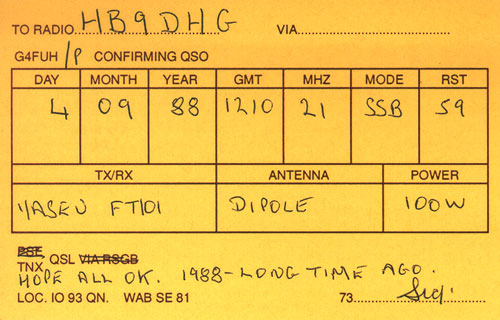 TO RADIO HB9DHG VIA
G4FUH /P CONFIRMING QSO
DAY MONTH YEAR GMT MHZ MODE RST
4 09 88 1210 21 SSB 59
TX/RX ANTENNA POWER
YAESU FT101 DIPOLE 100W
PSE QSL VIA RSGB
TNX
HOPE ALL OK. 1988-LONG TIME AGO.
LOC. IO 93 QN. WAB SE 81 73